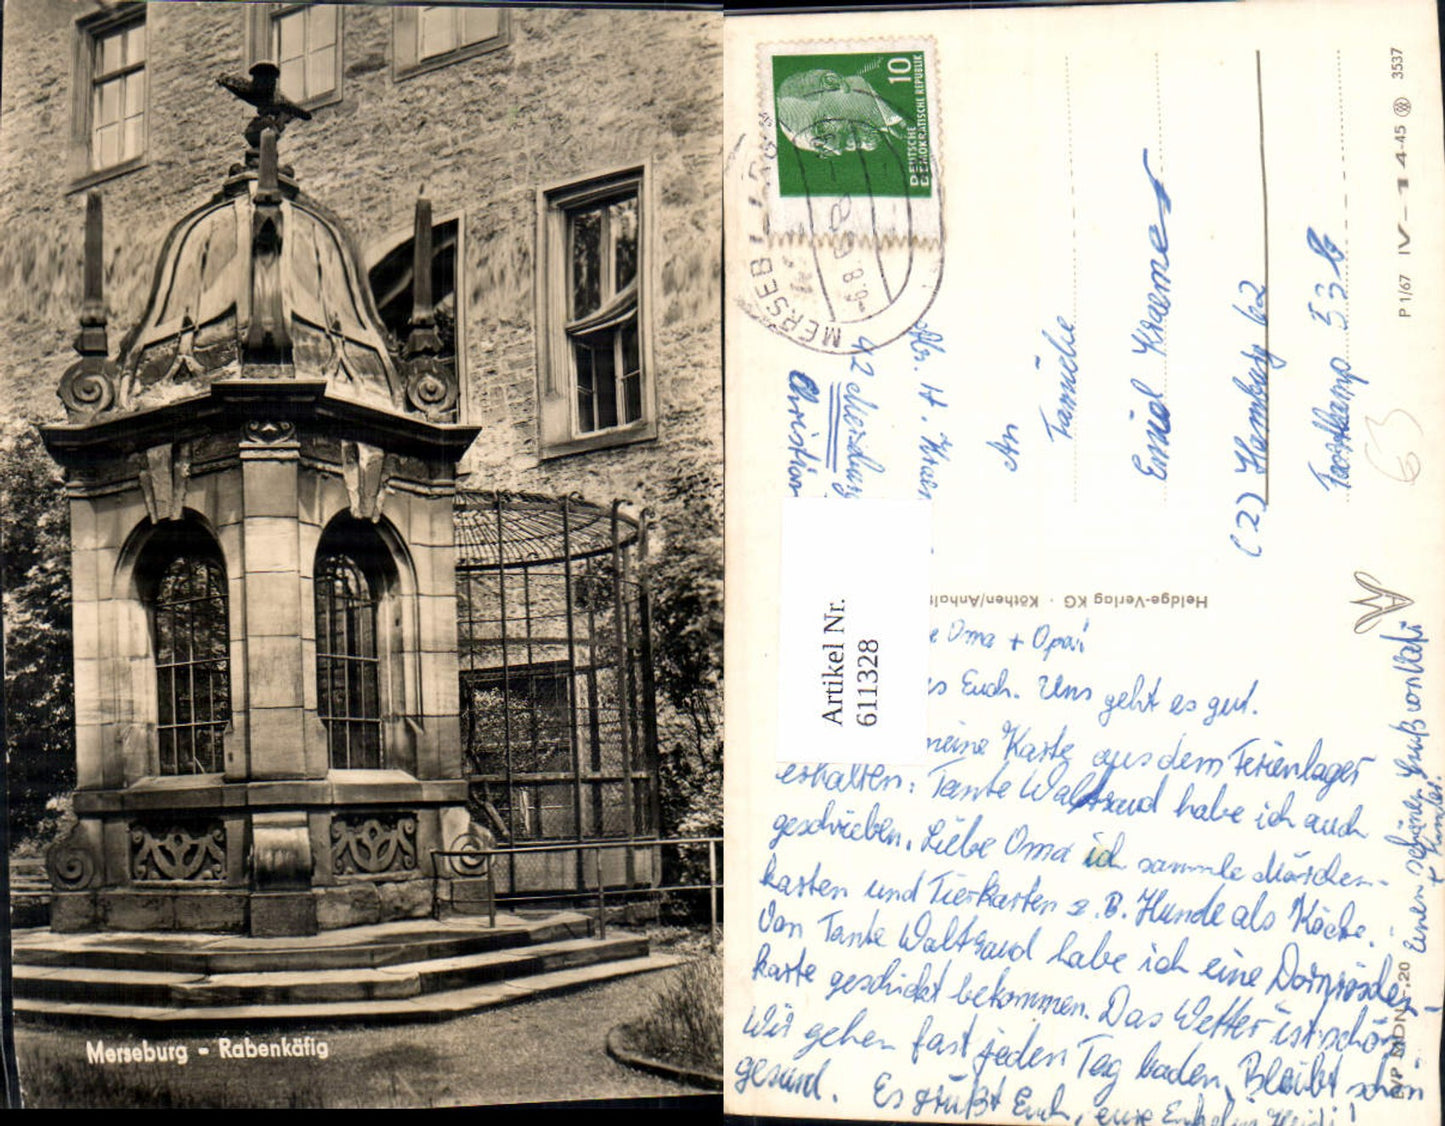 Merseburg - Rabenkäfig
10
DEUTSCHE
DEMOKRATISCHE REPUBLIK
MERSEBURG
-9.8.
Abs. H.
42 Merseburg
Christian
An
Familie
Emil Kraemer
(2) Hamburg 62
53 b
63
P 1/67 IV-14-45 3537
Heldge-Verlag KG · Köthen/Anhalt
Artikel Nr.
611328
Oma + Opa!
Euch. Uns geht es gut.
meine Karte aus dem Ferienlager
erhalten? Tante Waltraud habe ich auch
geschrieben. Liebe Oma ich sammle Märchen-
karten und Tierkarten z. B. Hunde als Köche.
Von Tante Waltraud habe ich eine Dornröschen-
karte geschickt bekommen. Das Wetter ist schön.
Wir gehen fast jeden Tag baden. Bleibt schön
gesund. Es grüßt Euch, eure Enkelin Heidi!
Einen schönen Gruß von Vati
MDN -.20